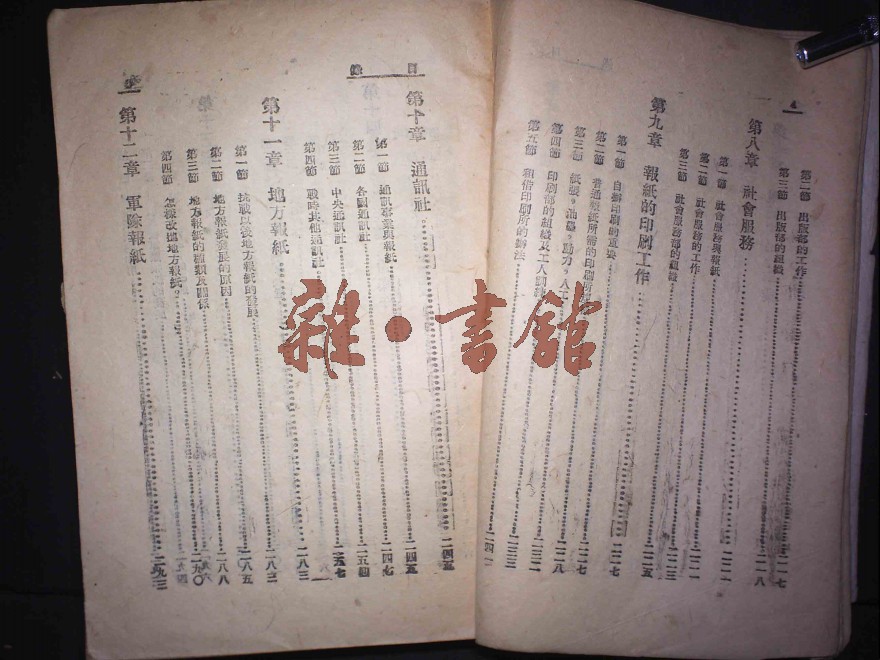 4
第二節 出版部的工作……二一七
第三節 出版部的組織……二一七
第八章 社會服務……二一八
第一節 社會服務與報紙
第二節 社會服務部的工作……二二一
第三節 社會服務部的組織……二二三
第九章 報紙的印刷工作……二二五
第一節 自辦印刷的重要
第二節 普通報紙所需的印刷所
第三節 紙張，油墨，動力，人工……二二七
第四節 印刷部的組織及工人訓練……二二八
第五節 租借印刷所的辦法
目錄
第十章 通訊社……二四五
第一節 通訊事業與報紙……二四五
第二節 各國通訊社……二四七
第三節 中央通訊社……二五四
第四節 戰時其他通訊社……二五七
第十一章 地方報紙……二八三
第一節 抗戰以後地方報紙的發展……二八三
第二節 地方報紙發展的原因……二八五
第三節 地方報紙的種類及關係……二八八
第四節 怎樣改進地方報紙。……二九〇
第十二章 軍隊報紙……二九三
雜·書館